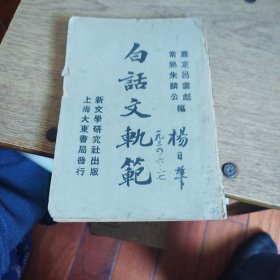 嘉定呂雲彪
常熟朱麟公
編
白話文軌範
新文學研究社出版
上海大東書局發行
楊日華
一九三四.六.二七